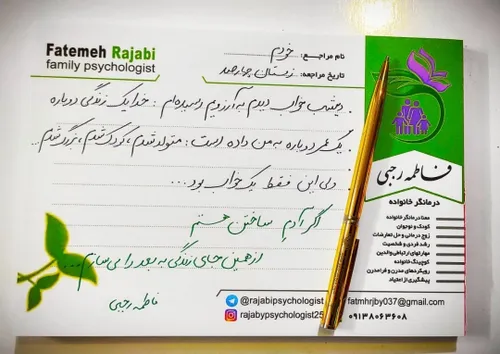 Fatemeh Rajabi
family psychologist
نام مراجع: خودم
تاریخ مراجعه: زمستان چهارصد
دیشب خواب دیدم به آرزویم رسیده‌ام: خدا یک زندگی دوباره
یک عمر دوباره به من داده است: متولد شدم، کودک شدم، بزرگ شدم...
ولی این فقط یک خواب بود...
اگر آدم ساختن هستم
از همین جای زندگی به بعد را می‌سازم...
فاطمه رجبی
فاطمه رجبی
درمانگر خانواده
معنا درمانگر خانواده
کودک و نوجوان
زوج درمانی و حل تعارضات
رشد فردی و شخصیت
مهارتهای ارتباطی والدین
کوچینگ خانواده
رویکردهای مدرن و فرامدرن
پیشگیری از اعتیاد
@rajabipsychologist
fatmhrjby037@gmail.com
@rajabypsychologist25
۰۹۱۳۸۰۶۳۶۰۸